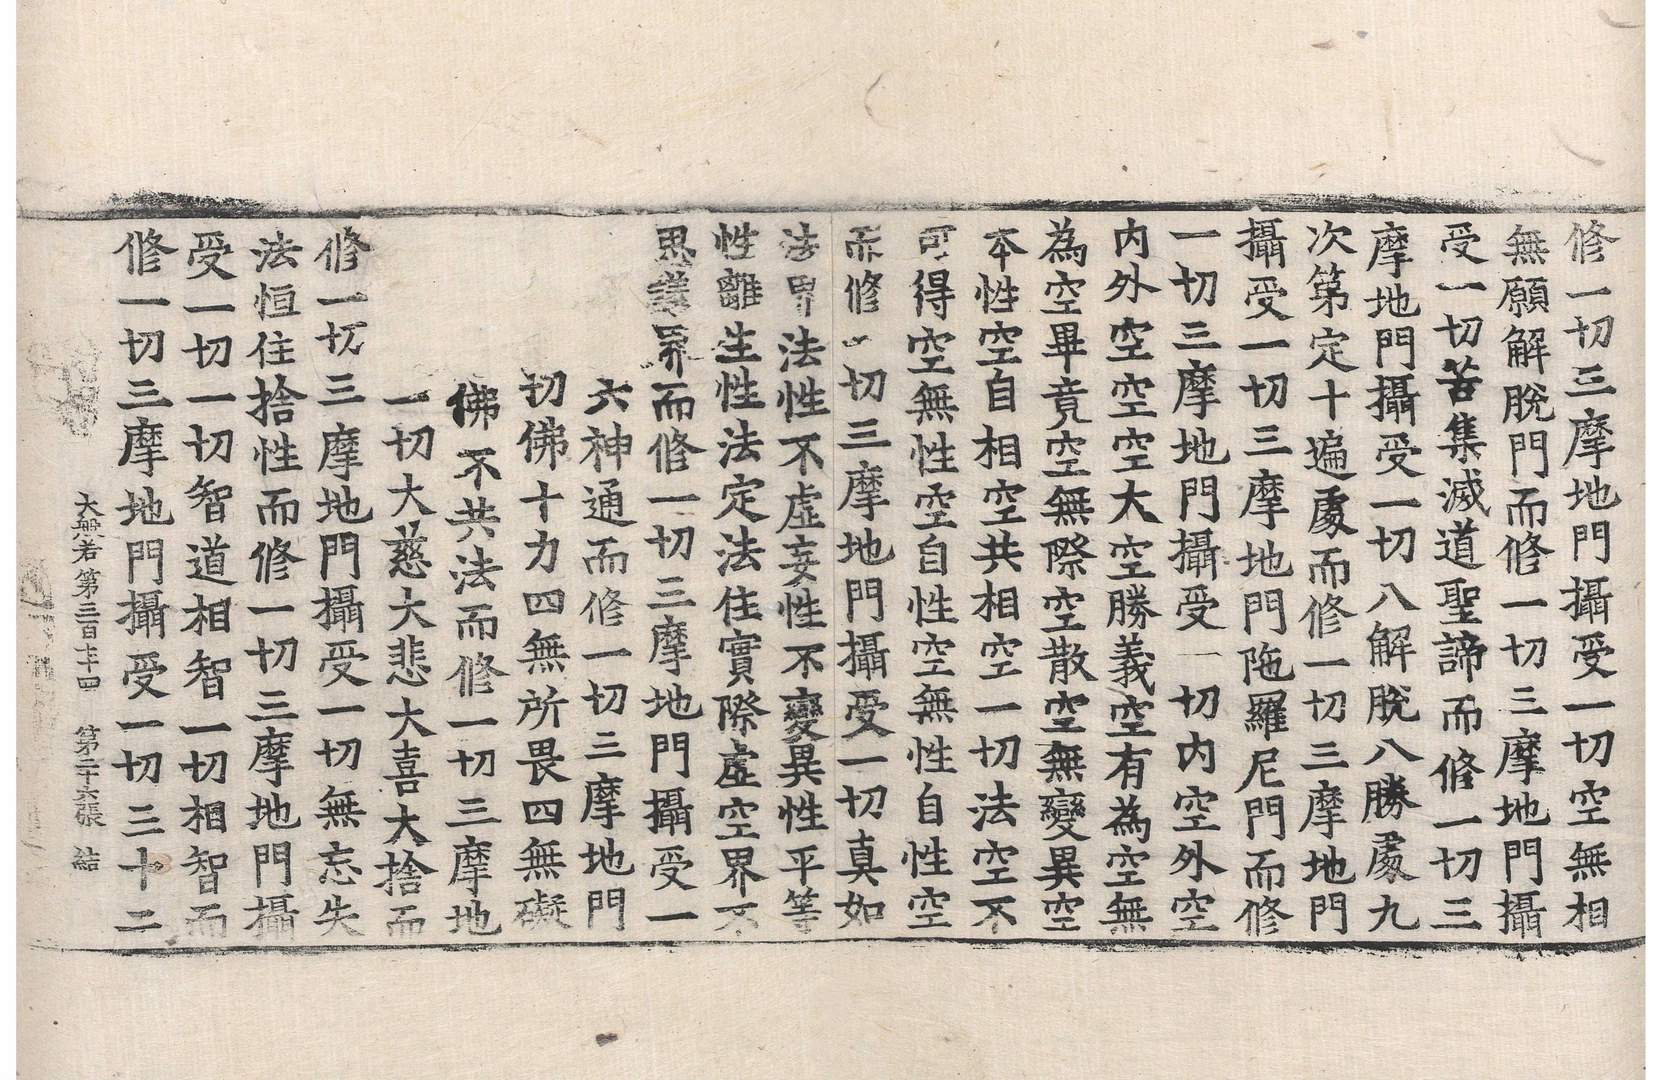 修一切三摩地門攝受一切空無相
無願解脫門而修一切三摩地門攝
受一切苦集滅道聖諦而修一切三
摩地門攝受一切八解脫八勝處九
次第定十遍處而修一切三摩地門
攝受一切三摩地門陁羅尼門而修
一切三摩地門攝受一切內空外空
內外空空空大空勝義空有為空無
為空畢竟空無際空散空無變異空
本性空自相空共相空一切法空不
可得空無性空自性空無性自性空
而修一切三摩地門攝受一切真如
法界法性不虛妄性不變異性平等
性離生性法定法住實際虛空界不
思議界而修一切三摩地門攝受一
六神通而修一切三摩地門
切佛十力四無所畏四無礙
佛不共法而修一切三摩地
一切大慈大悲大喜大捨而
修一切三摩地門攝受一切無忘失
法恒住捨性而修一切三摩地門攝
受一切一切智道相智一切相智而
修一切三摩地門攝受一切三十二
大般若第三百七十四 第二十六張 結